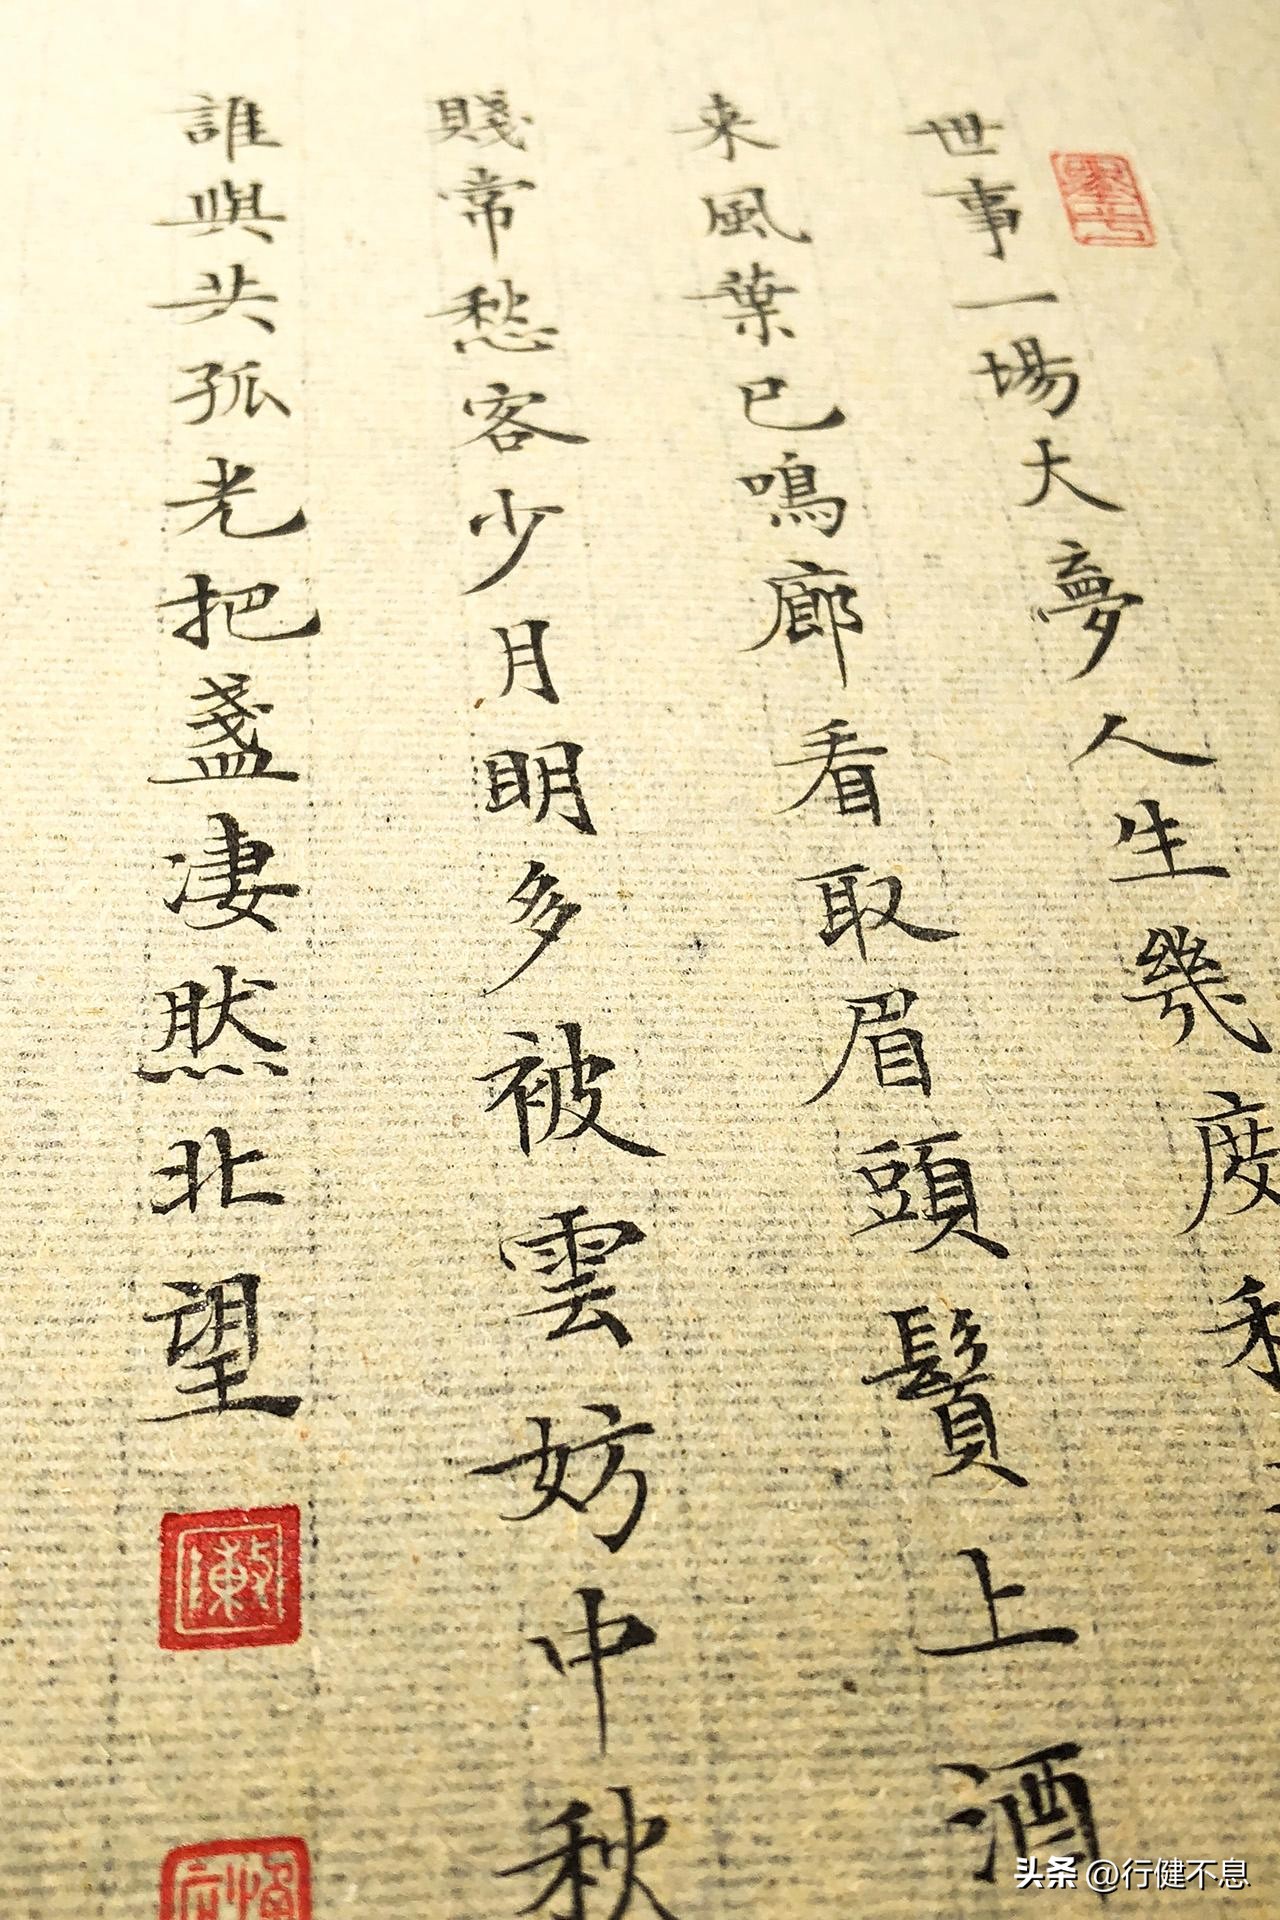 世事一場大夢人生幾度秋
来風葉已鳴廊看取眉頭鬢上酒
賤常愁客少月明多被雲妨中秋
誰與共孤光把盞凄然北望
头条 @行健不息